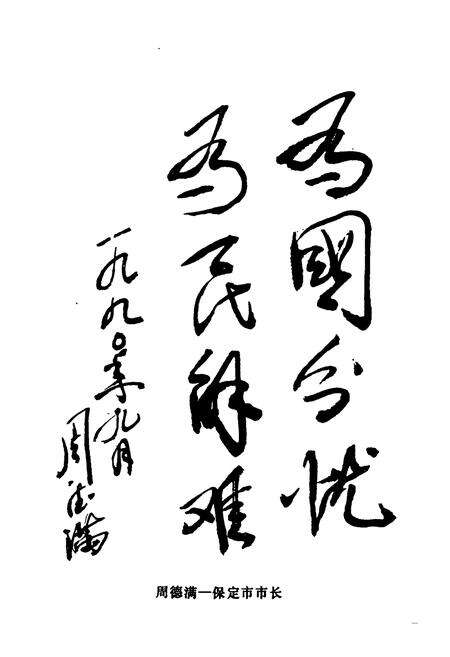 为国分忧
为民解难
一九九〇年九月
周德满
周德满—保定市市长